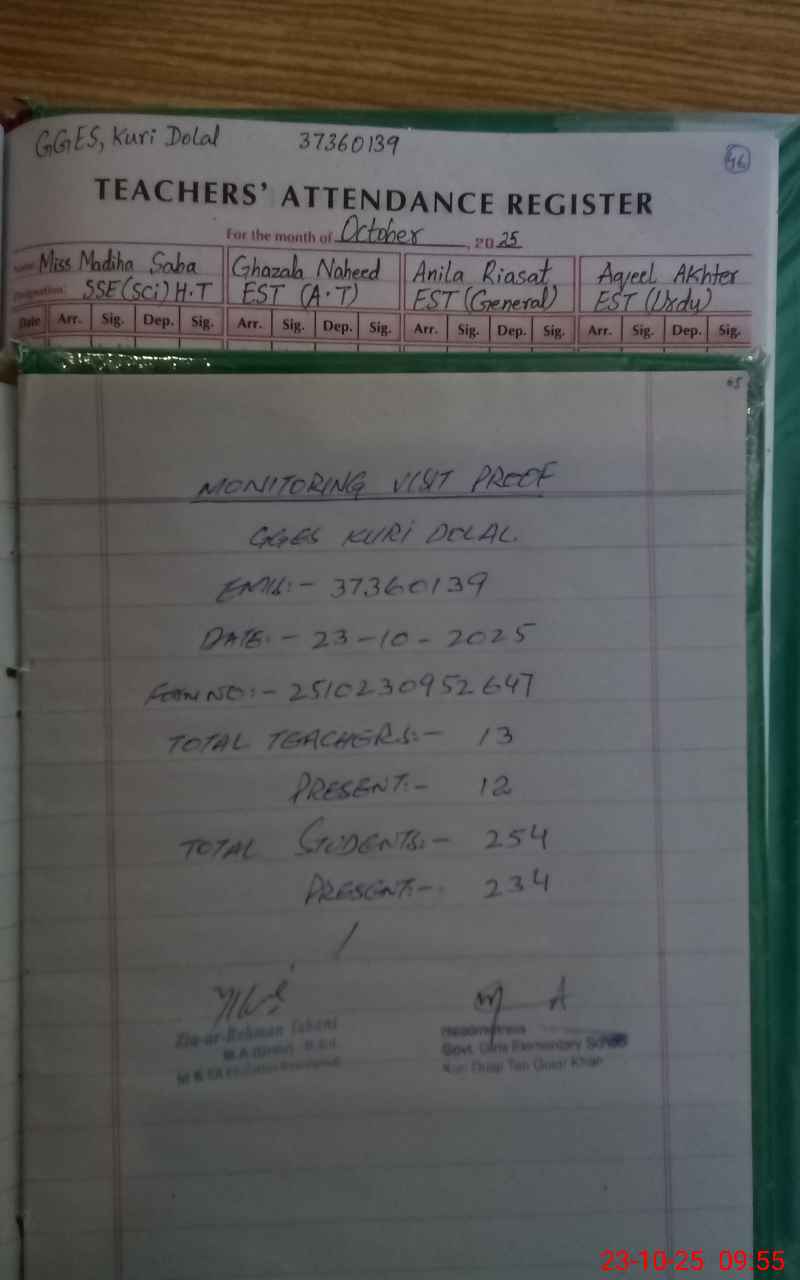 GGES, Kuri Dolal 37360139
46
TEACHERS' ATTENDANCE REGISTER
For the month of October, 2025
Name Miss Madiha Saba Ghazala Naheed Anila Riasat Aqeel Akhter
Designation: SSE(Sci) H.T EST (A.T) EST (General) EST (Urdu)
Date Arr. Sig. Dep. Sig. Arr. Sig. Dep. Sig. Arr. Sig. Dep. Sig. Arr. Sig. Dep. Sig.
MONITORING VISIT PROOF
GGES KURI DOLAL.
EMIS:- 37360139
DATE:- 23-10-2025
FORM NO:- 2510230952647
TOTAL TEACHERS:- 13
PRESENT:- 12
TOTAL STUDENTS:- 254
PRESENT:- 234
Zia-ur-Rehman
Govt. Girls Elementary School
Kuri Teh Gujar Khan
23-10-25 09:55